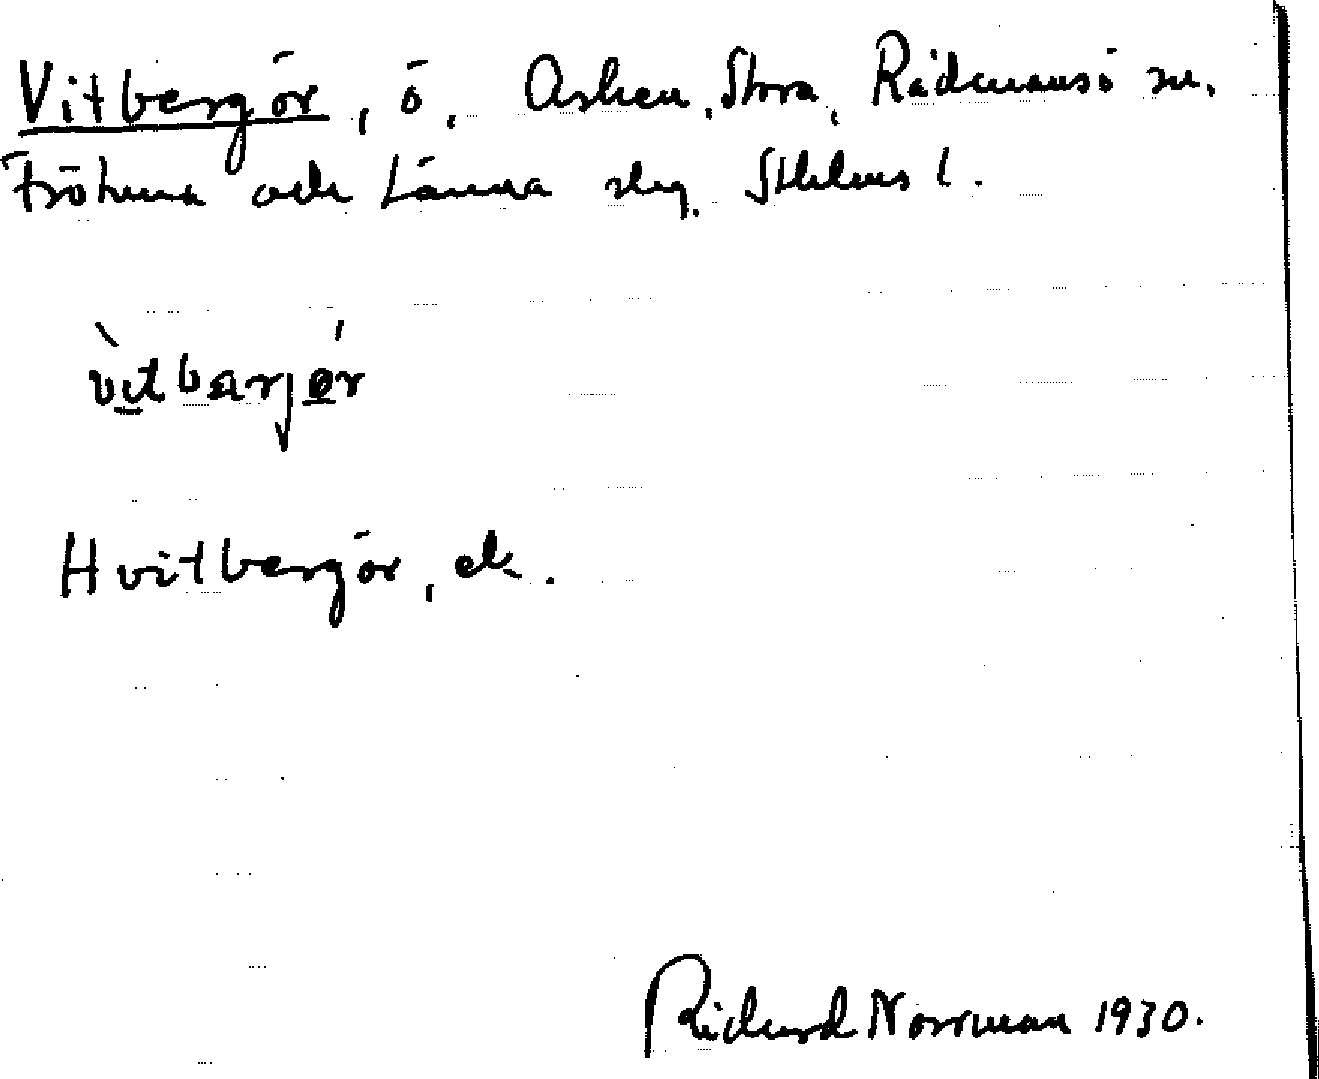 Vitbergör, ö, Asken, Stora, Rådmansö sn,
Frötuna och Länna slg. Sthlms l.
vitbarjör
Hvitbergör, ek.
Richard Norrman 1930.